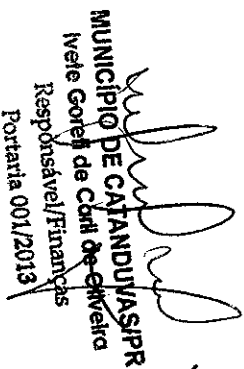 MUNICÍPIO DE CATANDUVAS/PR
Ivete Goreti de Carli de Oliveira
Responsável/Finanças
Portaria 001/2013